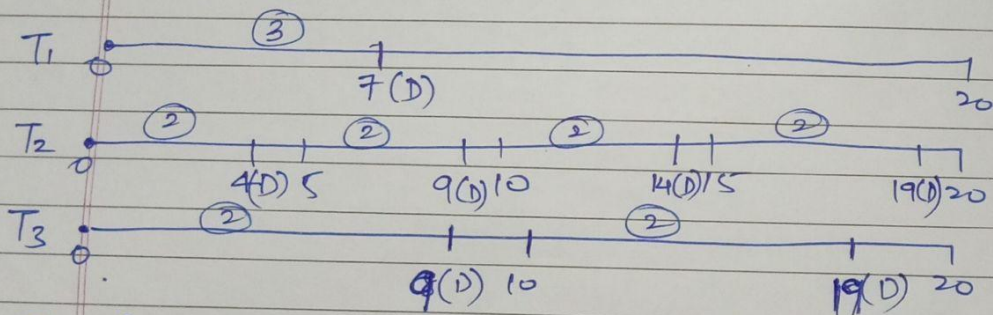 T1 0 3 7(D) 20
T2 0 2 4(D) 5 2 9(D) 10 2 14(D) 15 2 19(D) 20
T3 0 2 9(D) 10 2 19(D) 20